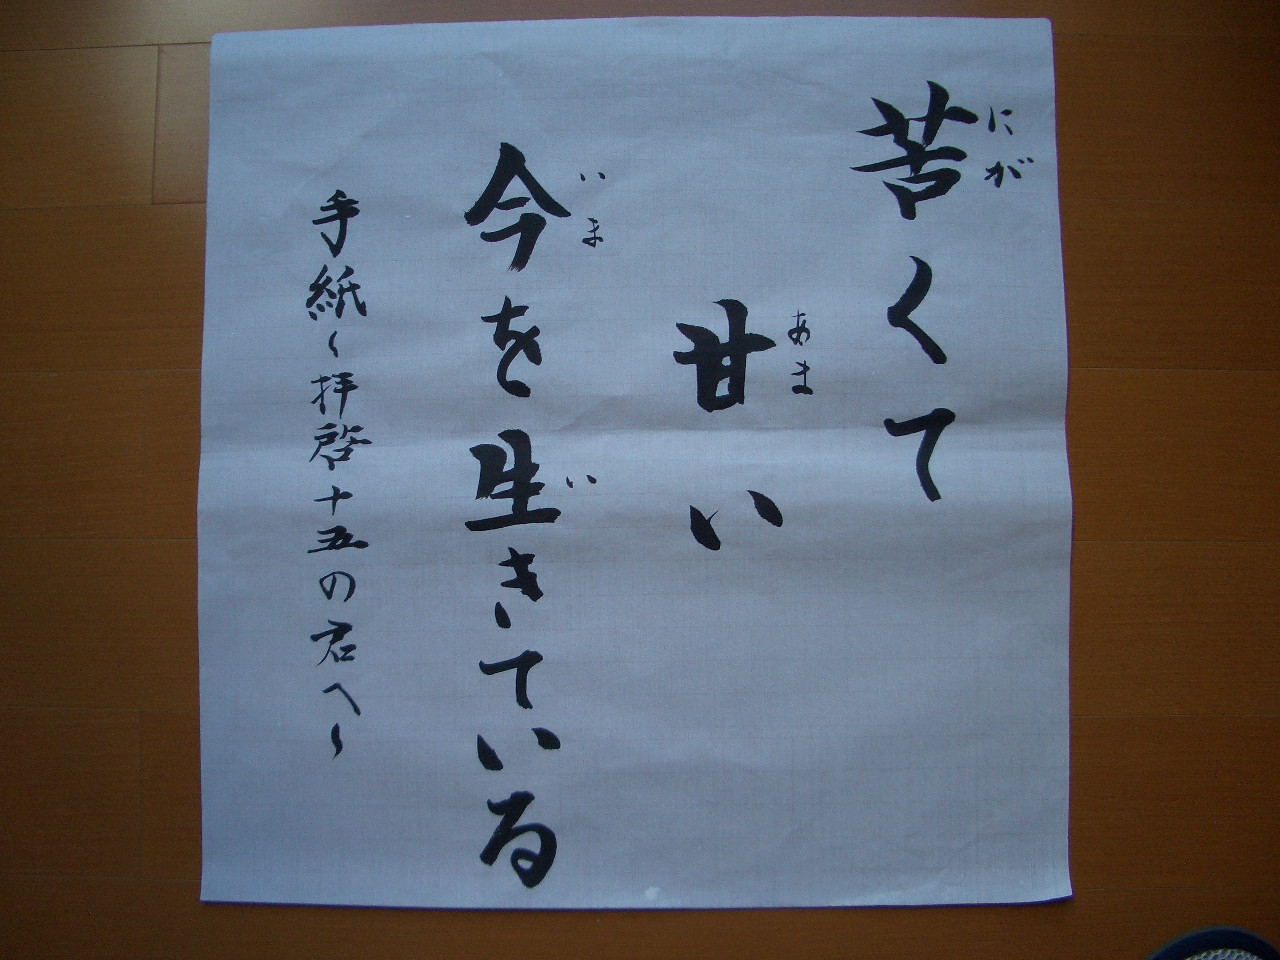 苦くて
にが
甘い
あま
今を生きている
いま
い
手紙～拝啓十五の君へ～